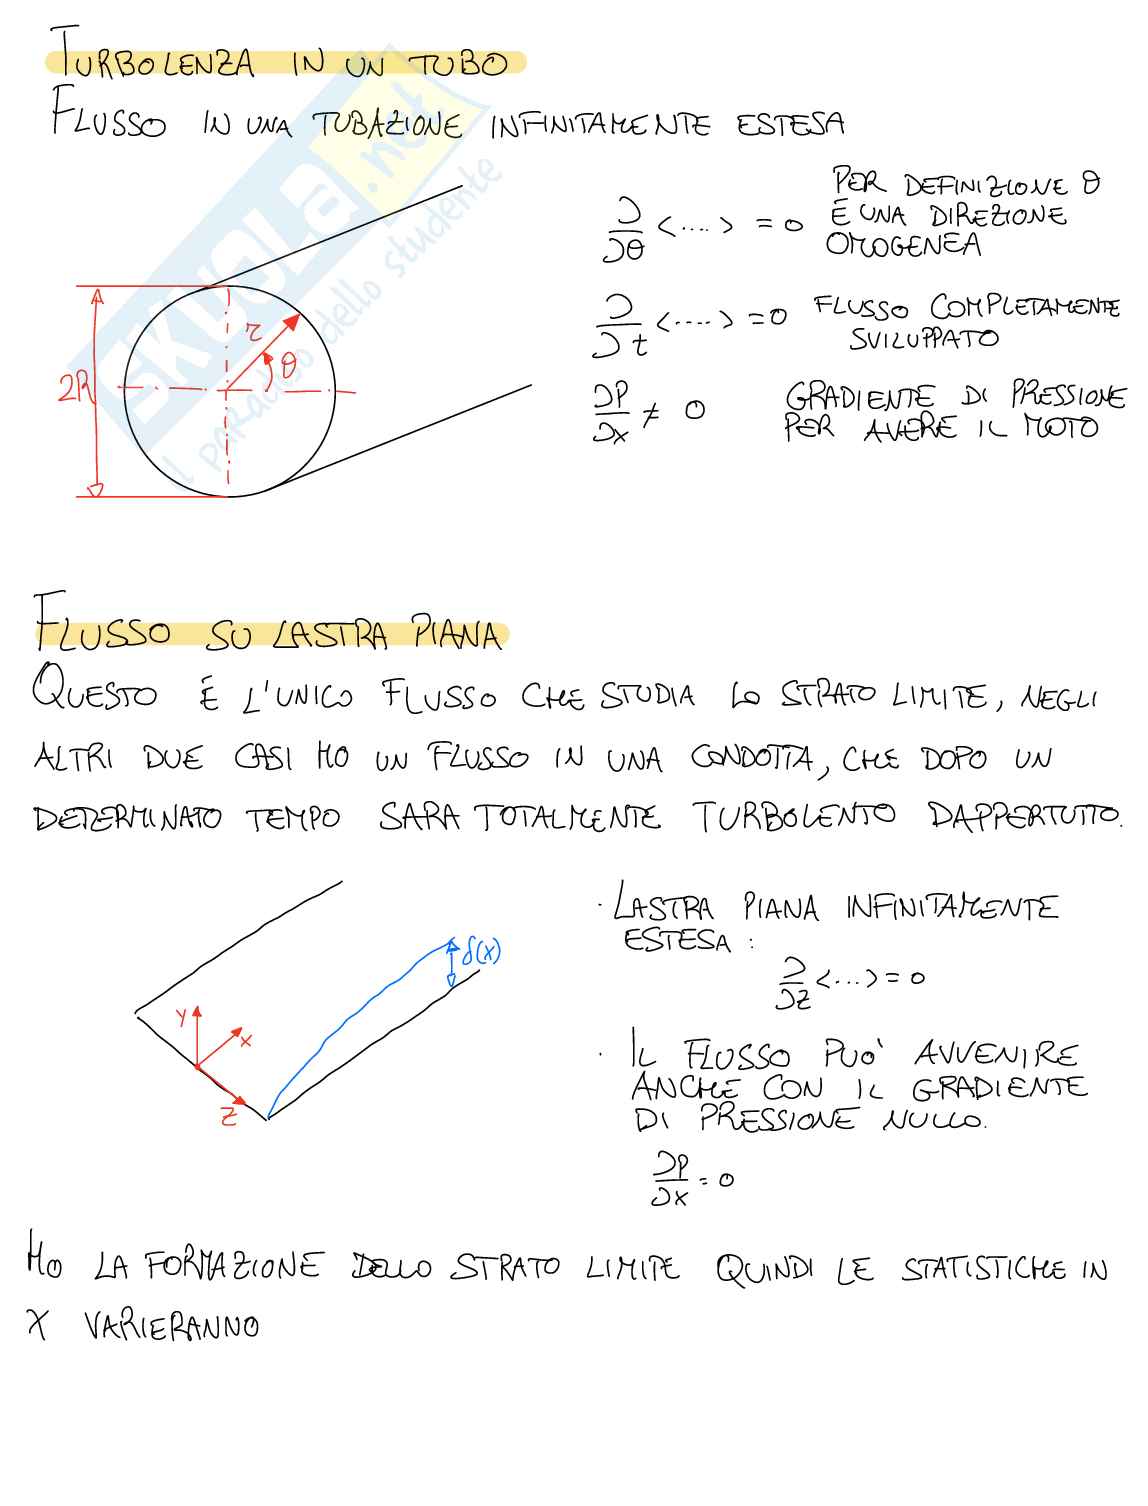 TURBOLENZA IN UN TUBO
FLUSSO IN UNA TUBAZIONE INFINITAMENTE ESTESA
∂/∂θ <....> = 0 PER DEFINIZIONE θ
È UNA DIREZIONE
OMOGENEA
∂/∂t <....> = 0 FLUSSO COMPLETAMENTE
SVILUPPATO
∂P/∂x ≠ 0 GRADIENTE DI PRESSIONE
PER AVERE IL MOTO
2R
r
θ
SKUOLA.net
il paradiso dello studente
FLUSSO SU LASTRA PIANA
QUESTO È L'UNICO FLUSSO CHE STUDIA LO STRATO LIMITE, NEGLI
ALTRI DUE CASI HO UN FLUSSO IN UNA CONDOTTA, CHE DOPO UN
DETERMINATO TEMPO SARA TOTALMENTE TURBOLENTO DAPPERTUTTO.
y
x
z
δ(x)
· LASTRA PIANA INFINITAMENTE
ESTESA :
∂/∂z <...> = 0
· IL FLUSSO PUO' AVVENIRE
ANCHE CON IL GRADIENTE
DI PRESSIONE NULLO.
∂P/∂x = 0
HO LA FORMAZIONE DELLO STRATO LIMITE QUINDI LE STATISTICHE IN
X VARIERANNO